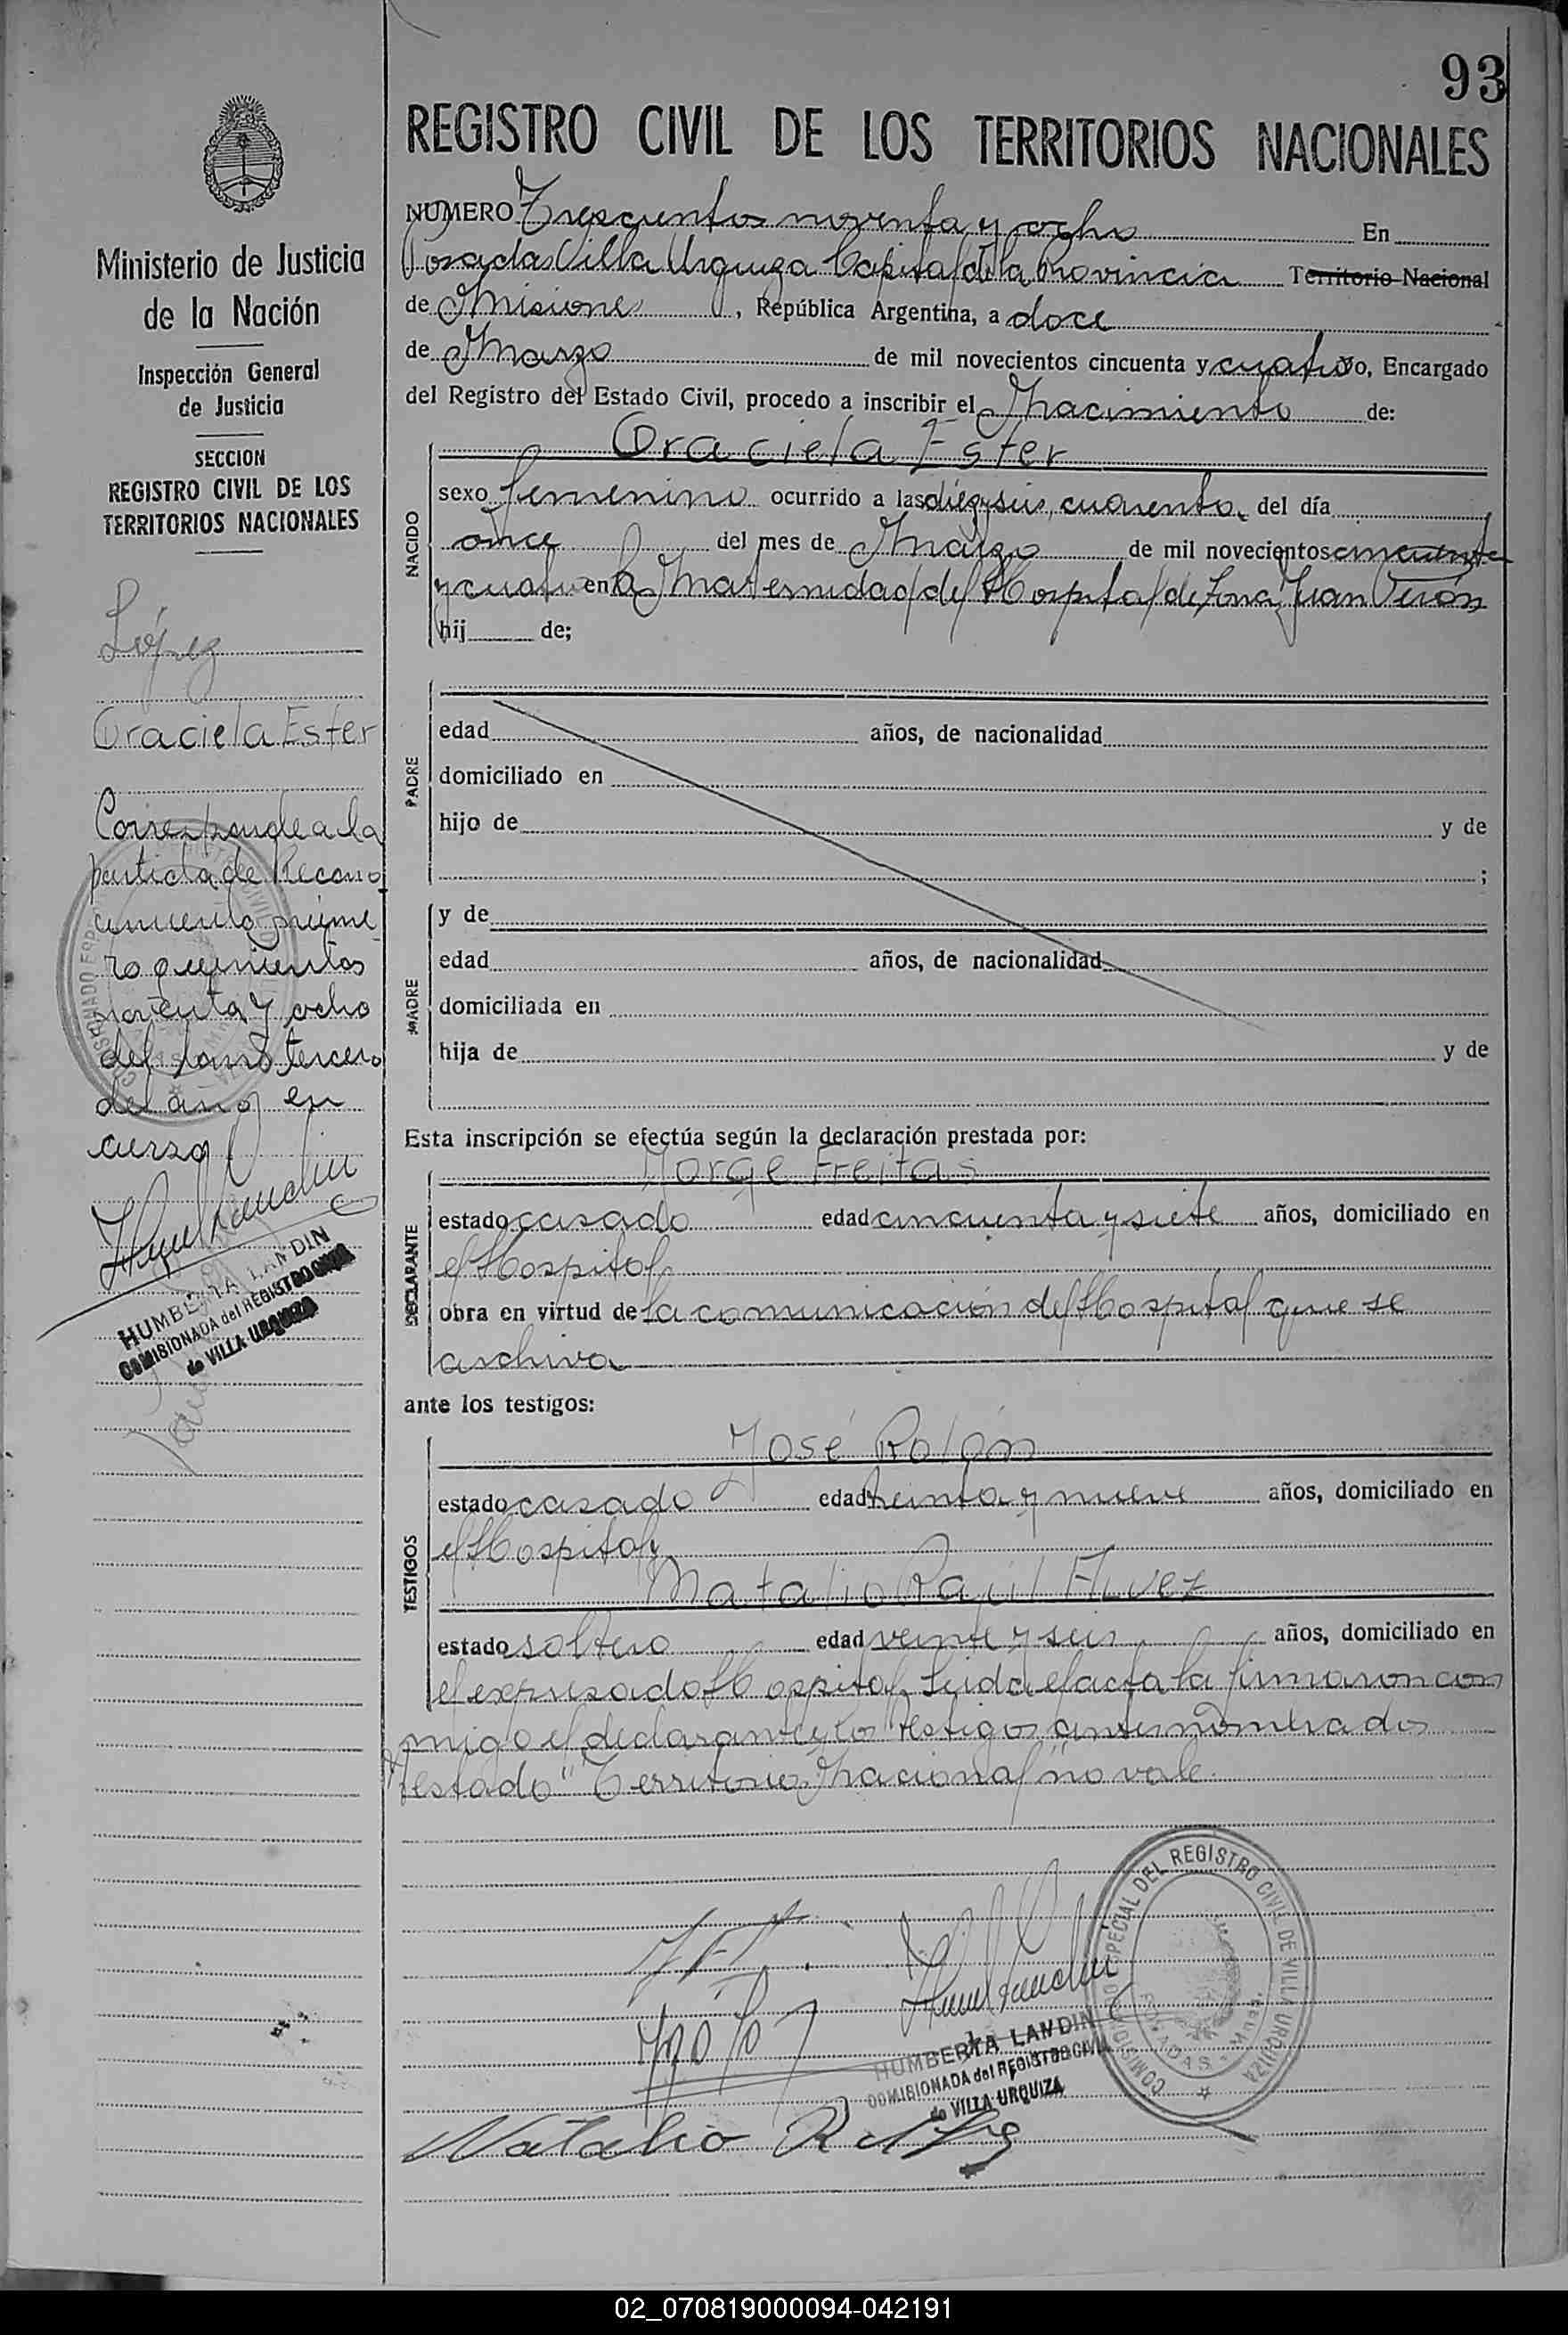 93
REGISTRO CIVIL DE LOS TERRITORIOS NACIONALES
NUMERO Trescientos noventa y ocho En
Posadas Villa Urquiza Capital de la Provincia Territorio Nacional
de Misiones, República Argentina, a doce
de Marzo de mil novecientos cincuenta y cuatro yo, Encargado
del Registro del Estado Civil, procedo a inscribir el Nacimiento de:
Graciela Ester
NACIDO
sexo femenino ocurrido a las diez y seis, cuarenta, del día
once del mes de Marzo de mil novecientos cincuenta
y cuatro en la Maternidad del Hospital de Zona, Juan Perón
hij de;
PADRE
edad años, de nacionalidad
domiciliado en
hijo de y de
;
MADRE
y de
edad años, de nacionalidad
domiciliada en
hija de y de
Esta inscripción se efectúa según la declaración prestada por:
Jorge Freitas
DECLARANTE
estado casado edad cincuenta y siete años, domiciliado en
el Hospital
obra en virtud de la comunicación del Hospital que se
archiva
ante los testigos:
José Rolón
TESTIGOS
estado casado edad treinta y nueve años, domiciliado en
el Hospital y
Natalio Raúl Alvez
estado soltero edad veinte y seis años, domiciliado en
el expresado Hospital. Leída el acta la firmaron con
migo el declarante y los testigos antes nombrados
Testado "Territorio Nacional" no vale.
HUMBERTA LANDIN
COMISIONADA del REGISTRO CIVIL
de VILLA URQUIZA
COMISIONADO ESPECIAL DEL REGISTRO CIVIL DE VILLA URQUIZA
POSADAS
Natalio R
Ministerio de Justicia
de la Nación
Inspección General
de Justicia
SECCION
REGISTRO CIVIL DE LOS
TERRITORIOS NACIONALES
López
Graciela Ester
Corresponde a la
partida de Recono
cimiento núme
ro quinientos
noventa y ocho
del tomo tercero
del año en
curso
HUMBERTA LANDIN
COMISIONADA del REGISTRO CIVIL
de VILLA URQUIZA
02_070819000094-042191